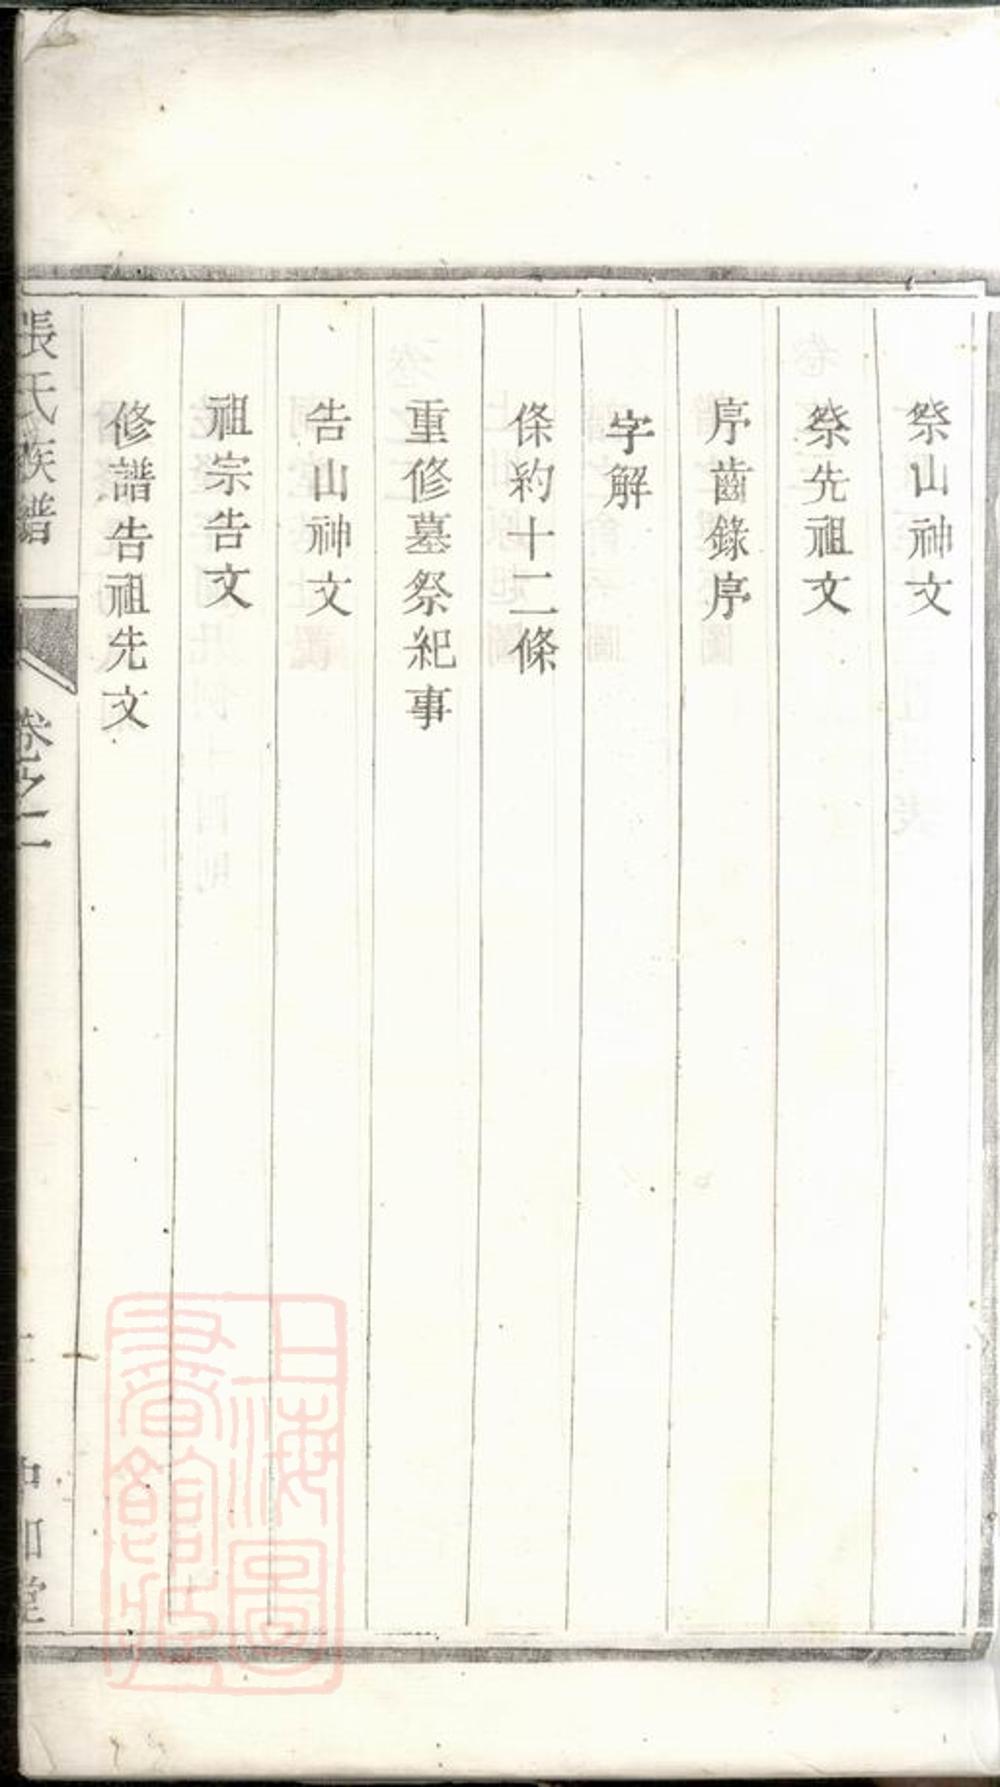 祭山神文
祭先祖文
序齒錄序
字解
條約十二條
重修墓祭紀事
告山神文
祖宗告文
修譜告祖先文
張氏族譜
卷之二
上海圖書館藏